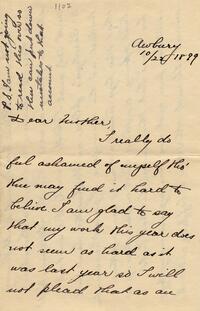 1102
P.S. I am not going
to read this over so
thee can put down
mistakes to that
account
Awbury
10/22 1899
Dear Mother,
I really do
feel ashamed of myself tho'
thee may find it hard to
believe I am glad to say
that my work this year does
not seem as hard as it
was last year so I will
not plead that as an